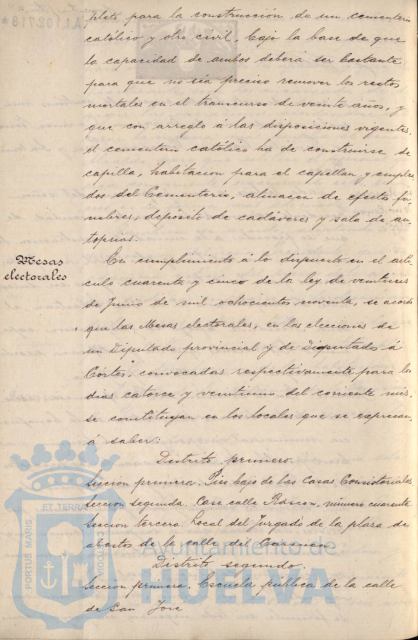 pleto para la construcción de un cementerio
católico y otro civil. Bajo la base de que
la capacidad de ambos deberá ser bastante
para que no sea preciso remover los restos
mortales en el transcurso de veinte años, y
que con arreglo á las disposiciones vigentes
el cementerio católico ha de construirse de
capilla, habitacion para el capellan y emplea
dos del Cementerio, almacen de efectos fú-
nebres, depósito de cadáveres y sala de au-
topsias.
Mesas
electorales
En cumplimiento á lo dispuesto en el artí
culo cuarenta y cinco de la ley de veintiseis
de Junio de mil ochocientos noventa, se acordó
que las Mesas electorales, en las elecciones de
un Diputado provincial y de Diputados á
Córtes, convocadas respectivamente para los
dias catorce y veintiuno del corriente mes,
se constituyan en los locales que se expresan,
á saber:
Distrito primero.
Seccion primera. Piso bajo de las Casas Consistoriales
Seccion segunda. Casa calle Rascon, número cuarenta
Seccion tercera Local del Juzgado de la plaza de
abastos de la calle del
Distrito segundo.
Seccion primera. Escuela pública de la calle
de San José
Ayuntamiento de
HUELVA
PORTUS MARIS
ET TERRAE